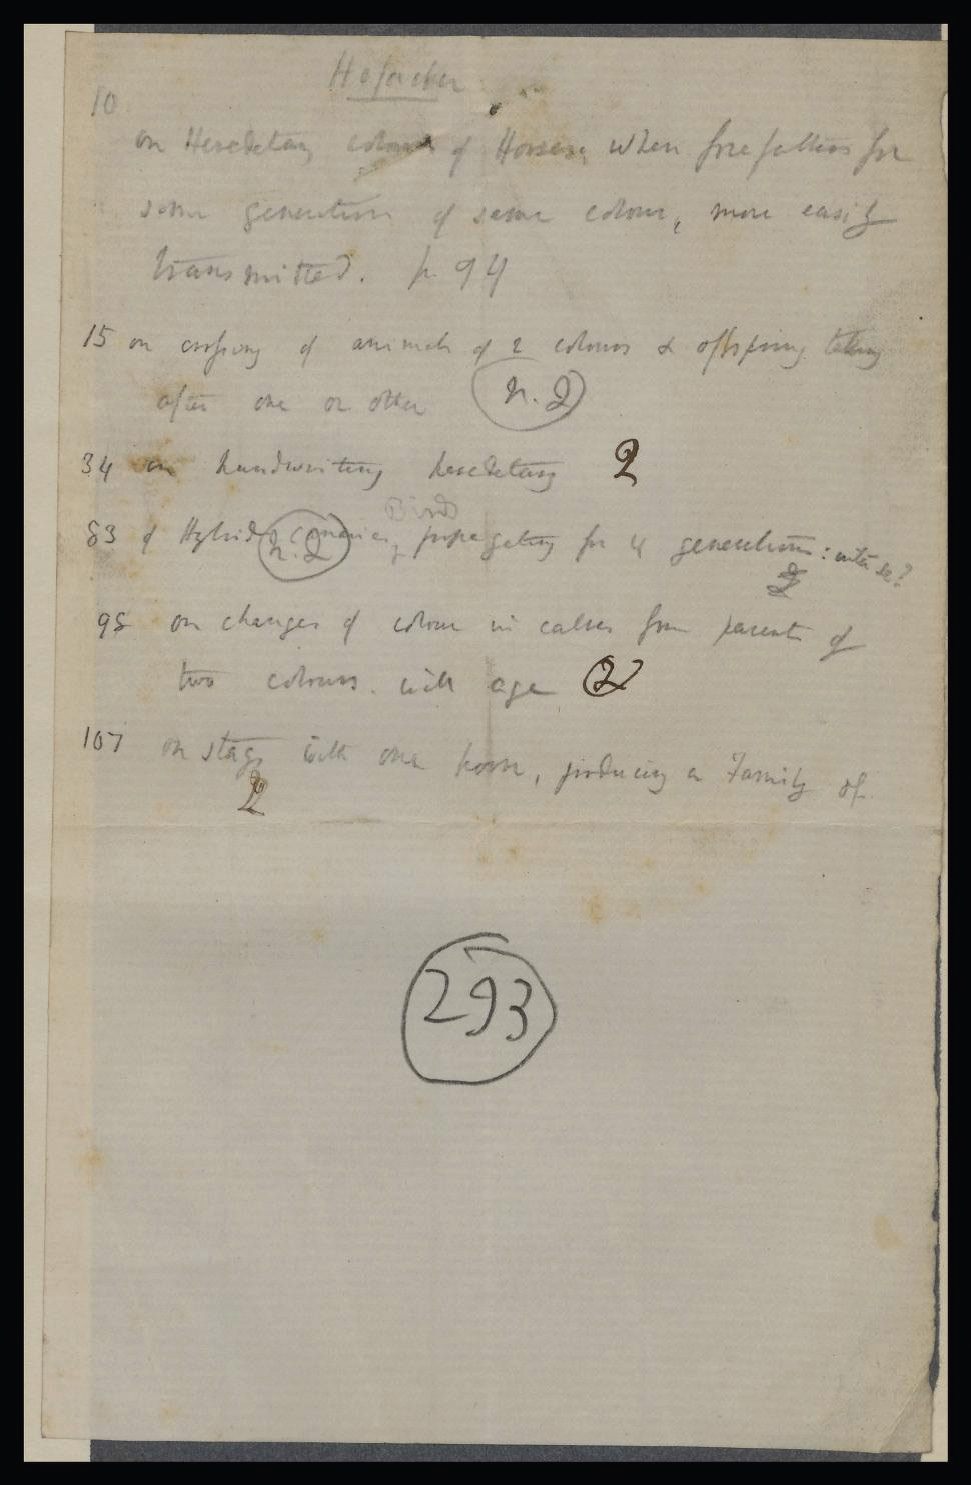 Hofacker
10
on Hereditary colours of Horses, when forefathers for
some generation of same colour, more easily
transmitted. p 94
15 on crossing of animals of 2 colours & offspring taking
after one or other n. 2
34 on handwriting hereditary 2
Bird
83 of Hybrid canaries, propagating for 4 generations: inter se?
n. 2
2
98 on changes of colour in calves from parents of
two colours. with age 2
107 on stag with one horn, producing a Family of
2
293